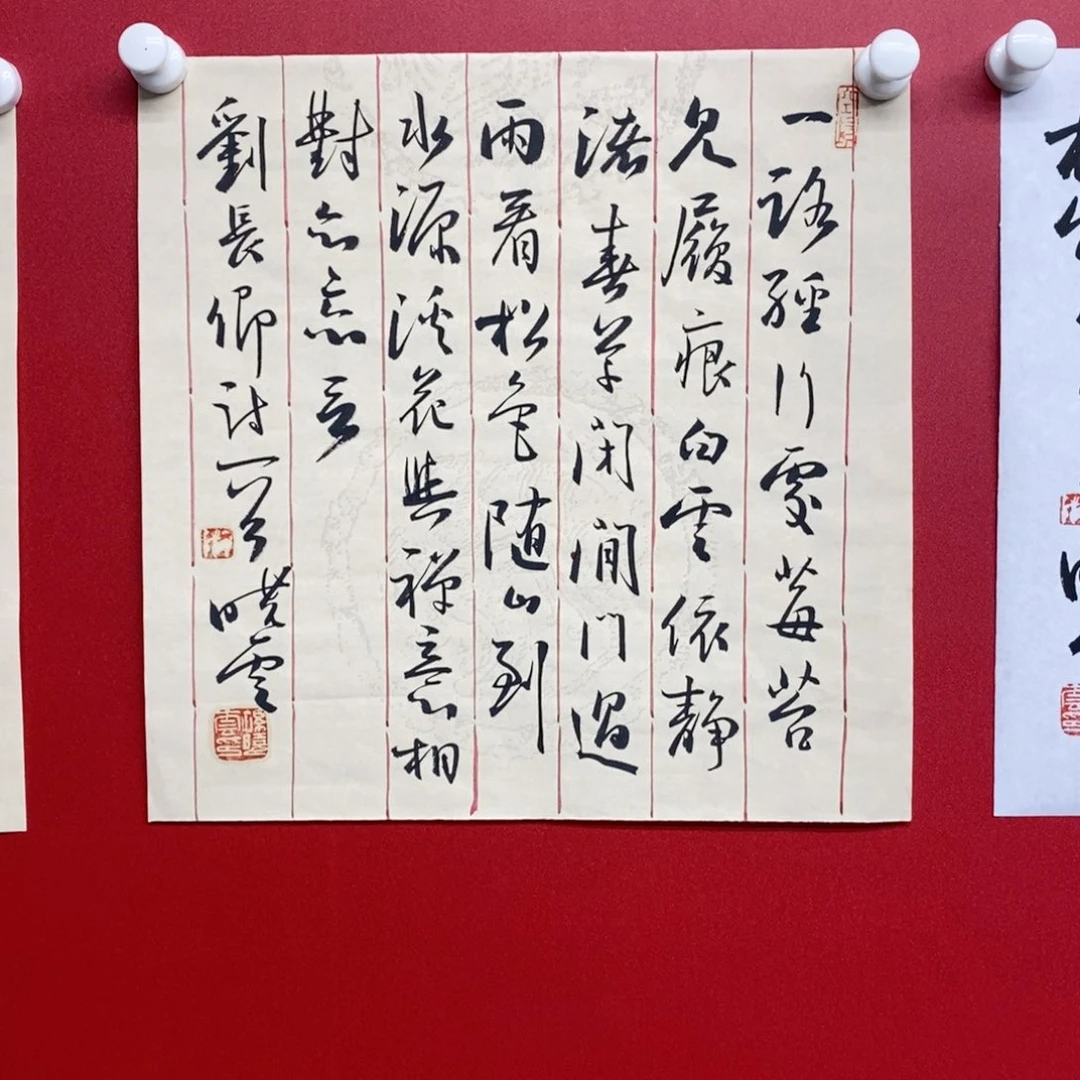 一路經行處莓苔
見履痕白雲依靜
渚春草閉閒門過
雨看松色随山到
水源溪花與禪意相
對亦忘言
劉長卿詩一首 曉雲
孫曉雲印